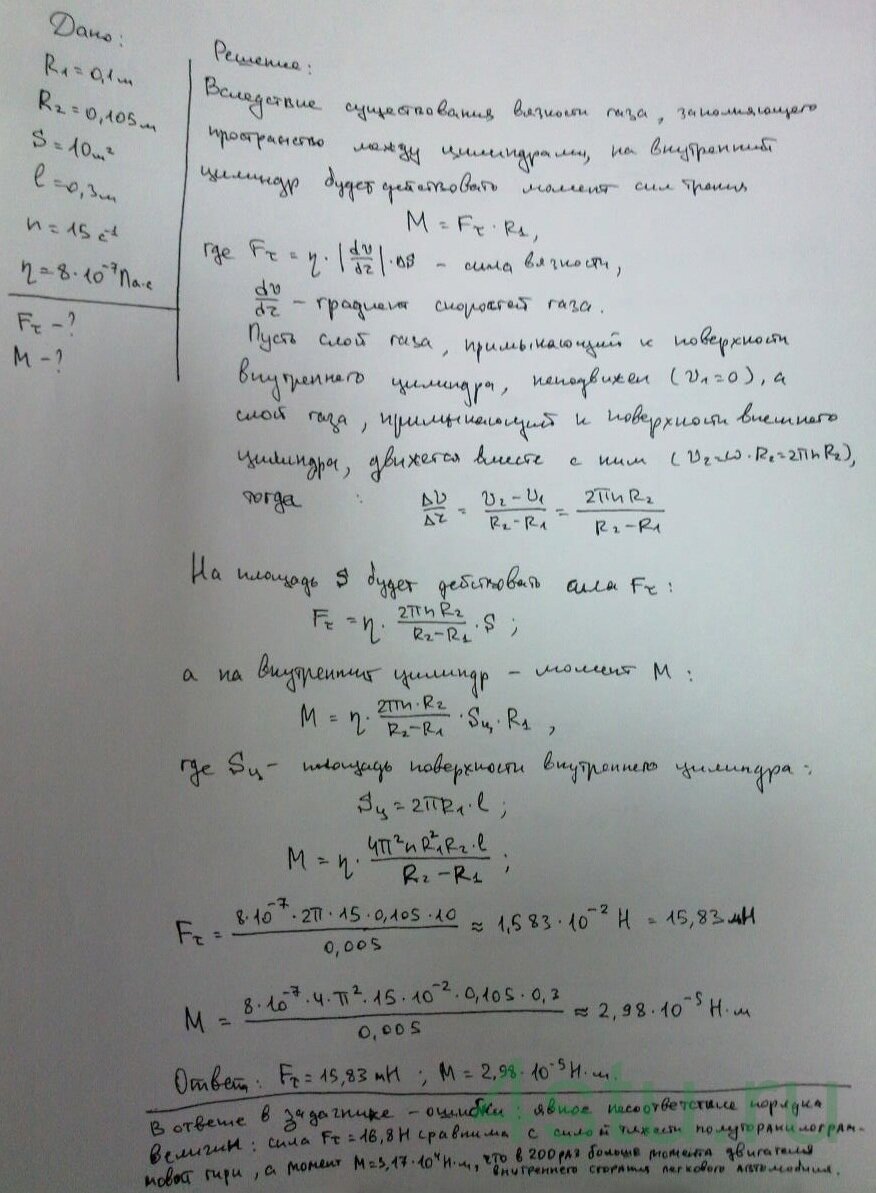 Дано:
R₁=0,1м
R₂=0,105м
S=10м²
l=0,3м
n=15 с⁻¹
η=8·10⁻⁷Па·с
Fτ-?
M-?
Решение:
Вследствие существования вязкости газа, заполняющего
пространство между цилиндрами, на внутренний
цилиндр будет действовать момент сил трения
M = Fτ · R₁,
где Fτ = η · |dv/dr| · ΔS – сила вязкости,
dv/dr – градиент скоростей газа.
Пусть слой газа, примыкающий к поверхности
внутреннего цилиндра, неподвижен (υ₁=0), а
слой газа, примыкающий к поверхности внешнего
цилиндра, движется вместе с ним (υ₂=ω·R₂=2πnR₂),
тогда : Δυ/Δr = (υ₂-υ₁)/(R₂-R₁) = 2πnR₂/(R₂-R₁)
На площадь S будет действовать сила Fτ:
Fτ = η · 2πnR₂/(R₂-R₁) · S ;
а на внутренний цилиндр – момент M:
M = η · 2πn·R₂/(R₂-R₁) · Sц · R₁ ,
где Sц – площадь поверхности внутреннего цилиндра:
Sц = 2πR₁·l ;
M = η · 4π²nR₁²R₂·l/(R₂-R₁) ;
Fτ = 8·10⁻⁷·2π·15·0,105·10/0,005 ≈ 1,583·10⁻² Н = 15,83 мН
M = 8·10⁻⁷·4·π²·15·10⁻²·0,105·0,3/0,005 ≈ 2,98·10⁻⁵ Н·м
Ответ: Fτ=15,83 мН ; M=2,98·10⁻⁵Н·м.
В ответе в задачнике – ошибки : явное несоответствие порядка
величин: сила Fτ=16,8Н сравнима с силой тяжести полуторакилограм-
мовой гири, а момент M=3,17·10⁴Н·м, что в 200 раз больше момента двигателя
внутреннего сгорания легкового автомобиля.